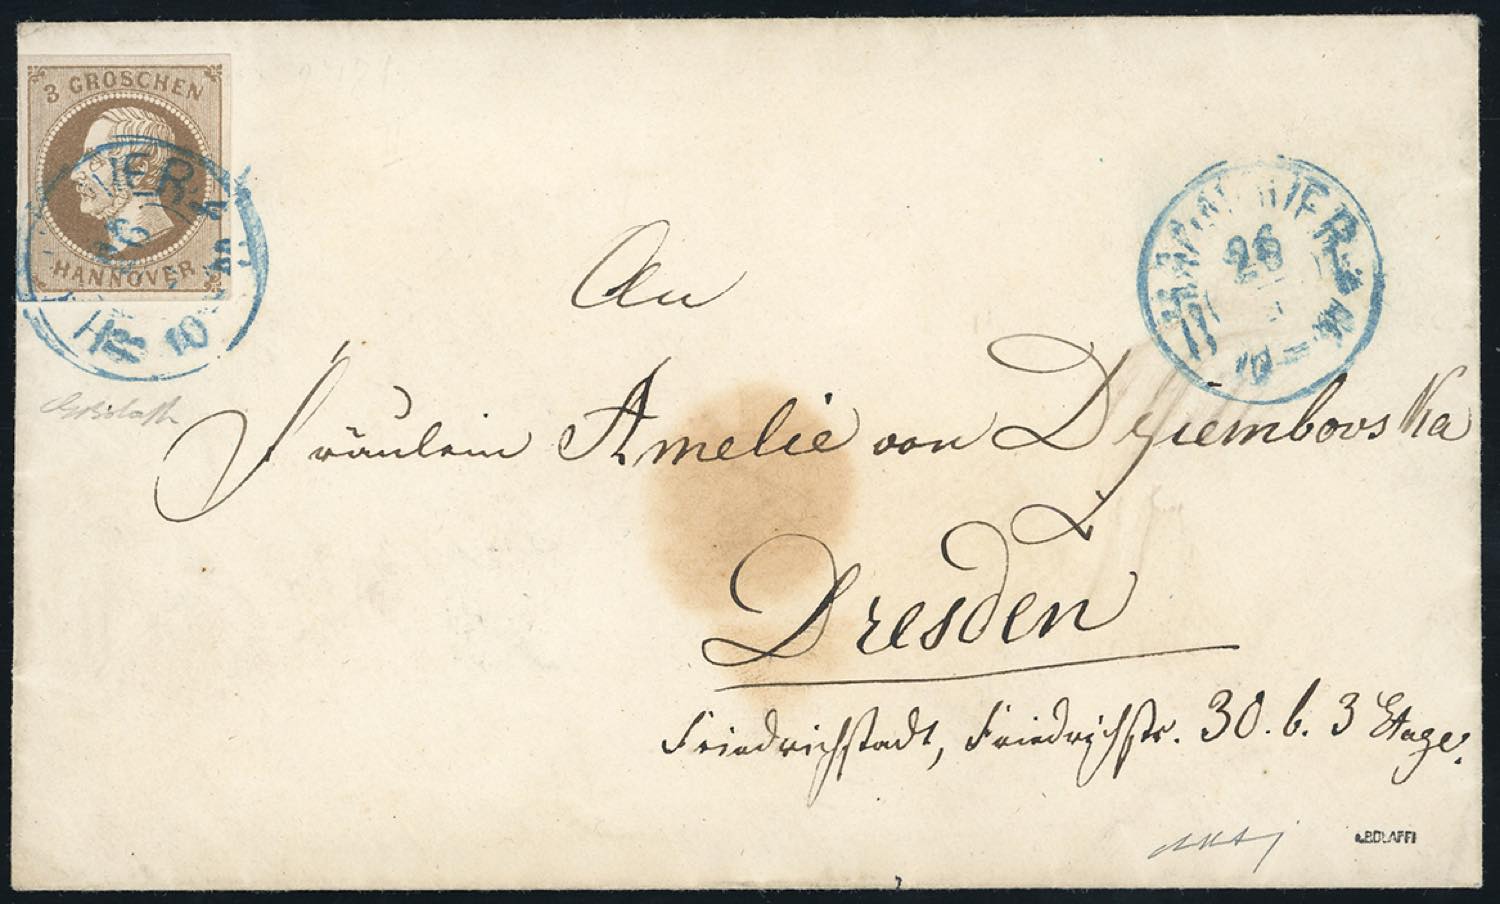 3 GROSCHEN
HANNOVER
26
HANNOVER
26
An
Fräulein Amelie von Dziembovska
Dresden
Friedrichstadt, Friedrichstr. 30. b. 3 Etage.
A.BOLAFFI